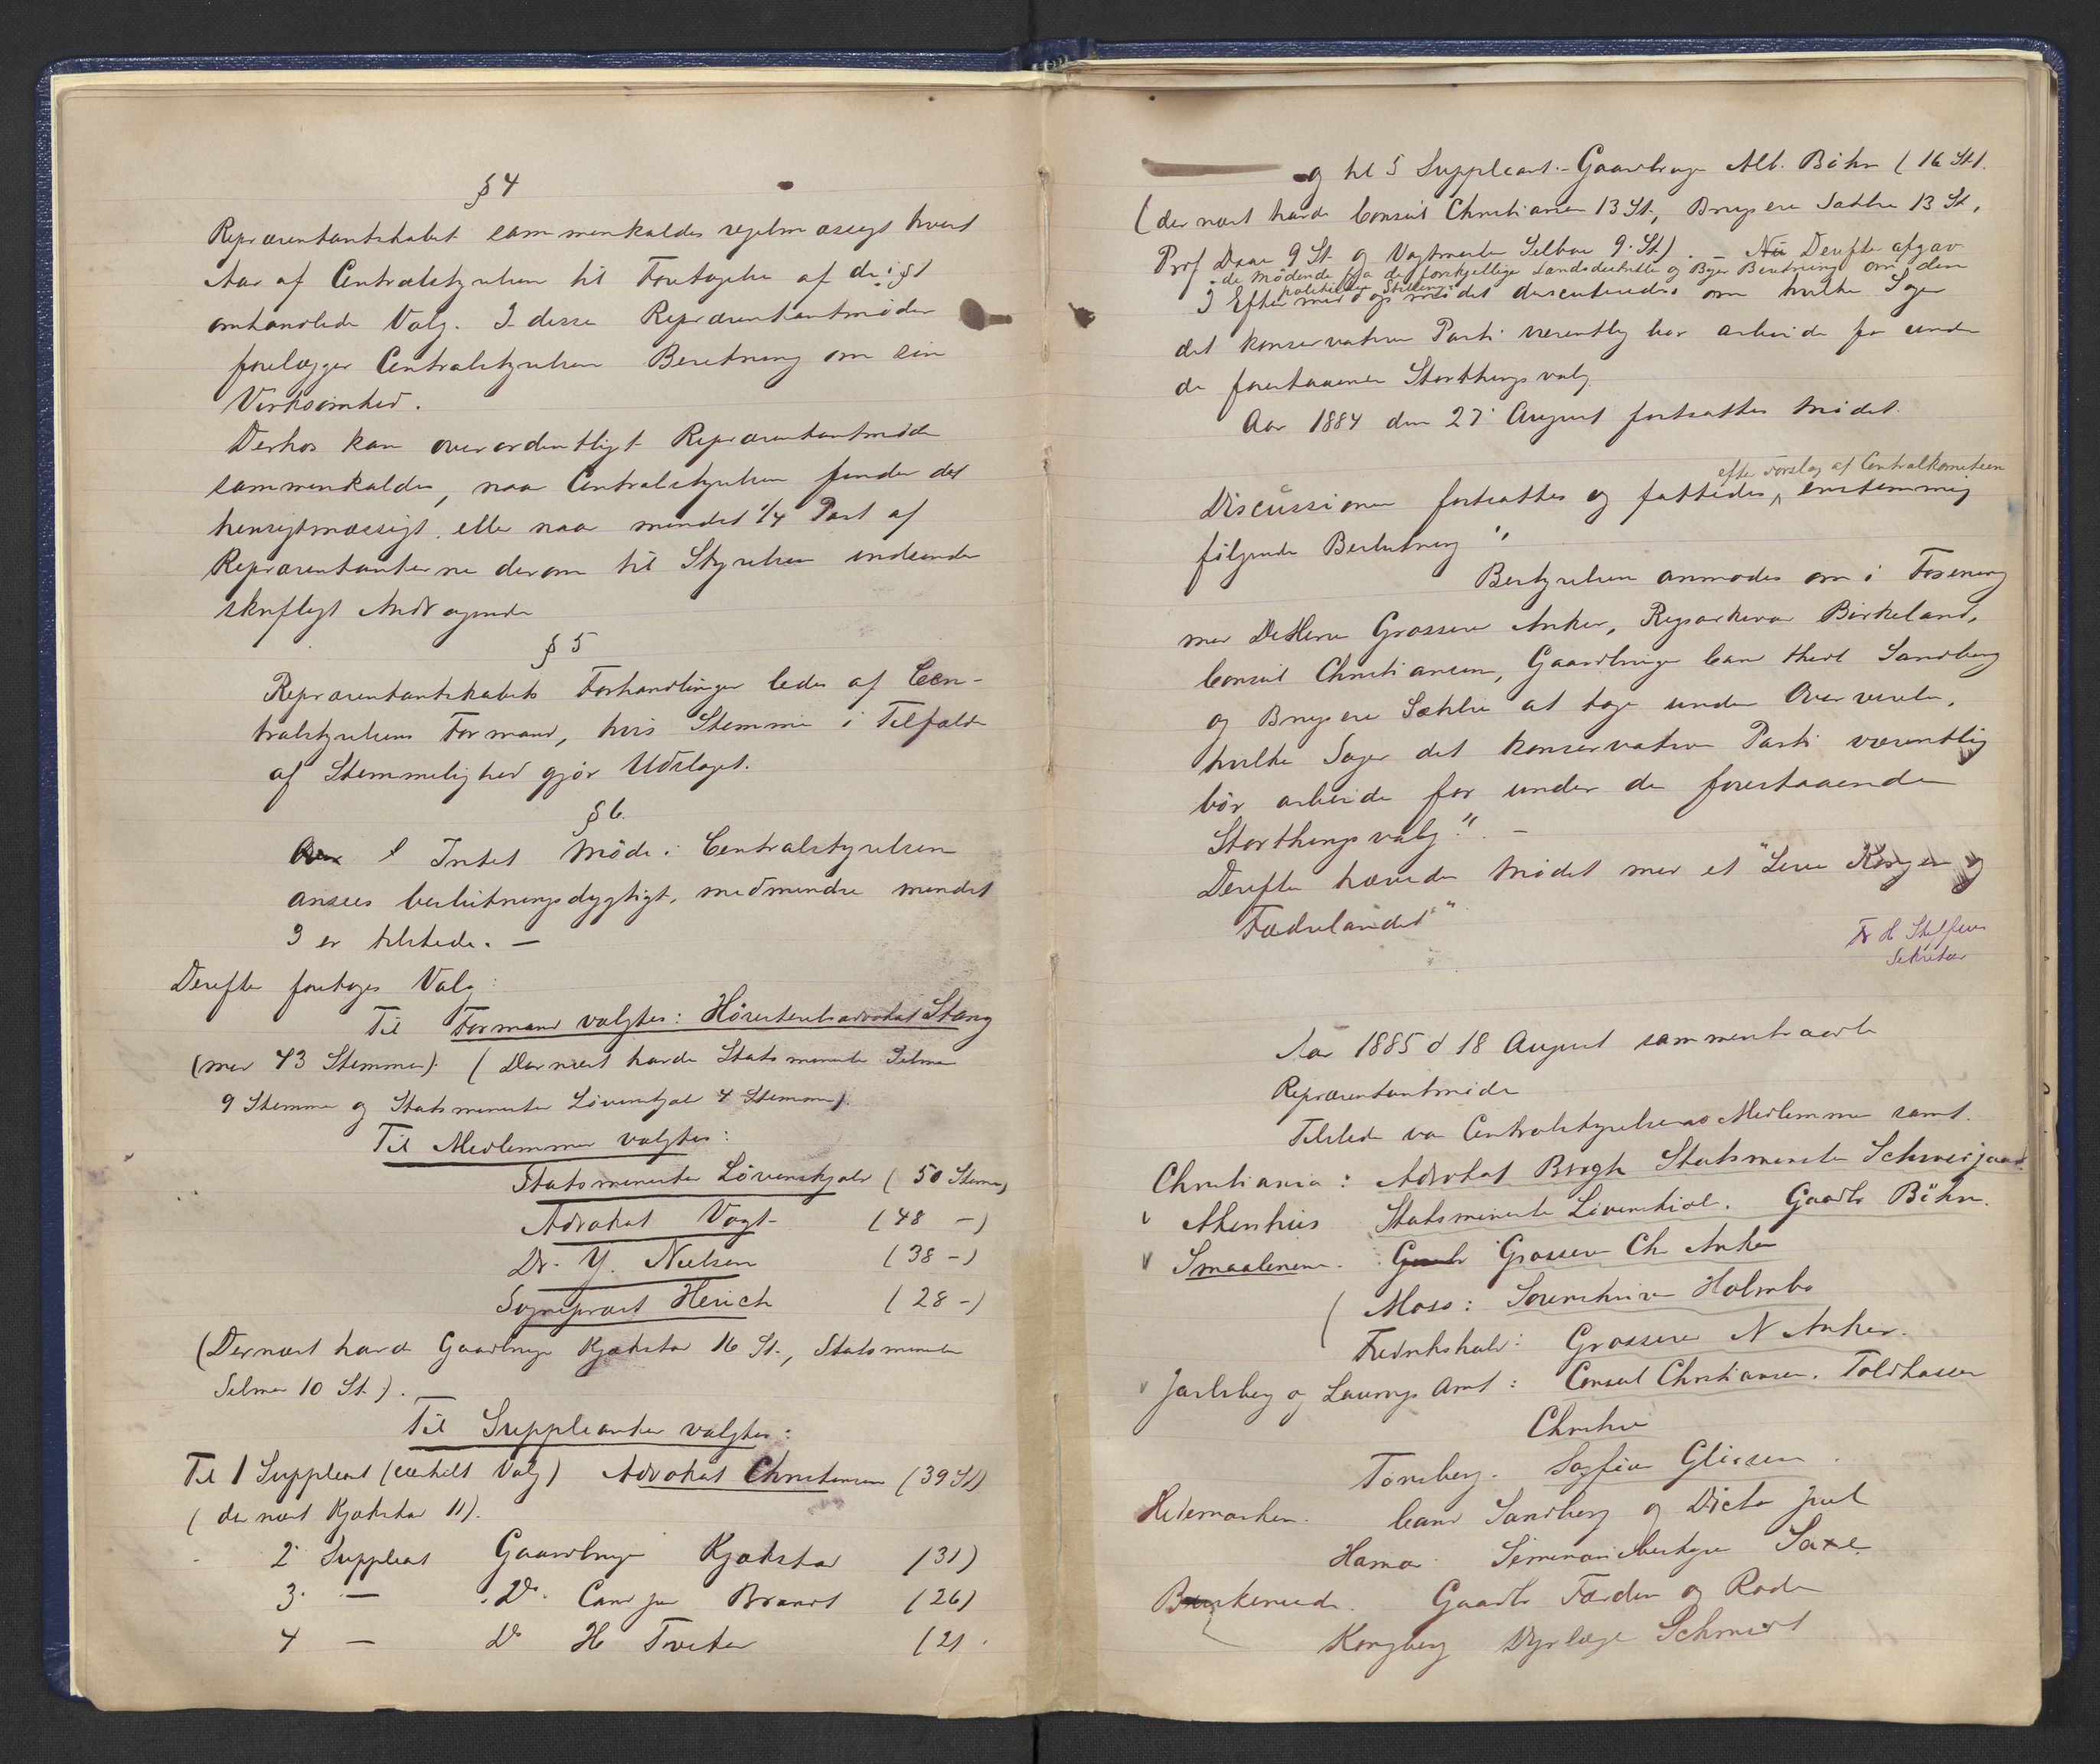 § 4
Repræsentantskabet sammenkaldes regelmæssigt hvert
Aar af Centralstyrelsen til Foretagelse af de i § 1
omhandlede Valg. I disse Repræsentantmøder
forelægger Centralstyrelsen Beretning om sin
Virksomhed.
Derhos kan overordentligt Repræsentantmøde
sammenkaldes, naar Centralstyrelsen finder det
hensigtmæssigt, eller naar mindst 1/4 Part af
Repræsentanterne derom til Styrelsen indsender
skriftligt Andragende
§ 5
Repræsentantskabets Forhandlinger ledes af Cen-
tralstyrelsens Formand, hvis Stemme i Tilfælde
af Stemmelighed gjør Udslaget.
§ 6.
Intet Møde i Centralstyrelsen
ansees beslutningsdygtigt, medmindre mindst
3 er tilstede. —
Derefter foretoges Valg:
Til Formand valgtes: Høiesteretsadvokat Stang
(med 43 Stemmer). (Dernæst havde Statsminister Selmer
9 Stemmer og Statsminister Løvenskjold 4 Stemmer).
Til Medlemmer valgtes:
Statsminister Løvenskjold (50 Stemmer)
Advokat Vogt (48 —)
Dr. Y. Nielsen (38 —)
Sogneprest Heuch (28 —)
(Dernæst havde Gaardbruger Kjøkstad 16 St., Statsminister
Selmer 10 St.).
Til Suppleanter valgtes:
Til 1 Suppleant (særskilt Valg) Advokat Christensen (39 St)
(dernæst Kjøkstad 11).
2 Suppleant Gaardbruger Kjøkstad (31)
3. — Dr. Cand jur Brandt (26)
4 — Dr H Tveter (21.
og til 5 Suppleant. Gaardbruger Alb. Bøhn (16 St).
(dernæst havde Consul Christiansen 13 St., Brugseier Sæhlie 13 St,
Prof Daae 9 St. og Vogtmester Selboe 9 St.). — Nu Derefter afgav
de Mødende fra de forskjellige Landsdistrikter og Byer Beretning om den
politiske Stilling.
I Eftermiddagsmødet discuteredes om hvilke Sager
det konservative Parti væsentlig bør arbeide for under
de forestaaende Storthingsvalg.
Aar 1884 den 27 August fortsattes Mødet.
efter Forslag af Centralkomiteen
Discussionen fortsattes og fattedes enstemmig
følgende Beslutning "
Bestyrelsen anmodes om i Forening
med DHerrer Grosserer Anker, Rigsarkivar Birkeland,
Consul Christiansen, Gaardbruger Cand theol Sandberg
og Brugseier Sæhlie at tage under Overveielse,
hvilke Sager det konservative Parti væsentlig
bør arbeide for under de forestaaende
Storthingsvalg". —
Derefter hævedes Mødet med et "Leve Kongen og
Fædrelandet"
Sekretær
Aar 1885 d 18 August sammentraadte
Repræsentantmøde
Tilstede var Centralstyrelsens Medlemmer samt.
Christiania: Advokat Bergh Statsminister Schweigaard
Akershus Statsminister Løvenskiold. Gaardb Bøhn.
Smaalenene. Gaardb Grosserer Ch Anker
(Moss: Sorenskriver Holmbo
Fredrikshald: Grosserer N Anker.
Jarlsberg og Laurvigs Amt: Consul Christiansen. Toldkasser
Christie
Tønsberg. Sagfører Gløersen.
Hedemarken. Cand Sandberg og Dicto Juel
Hamar Seminariebestyrer Saxe.
Buskerud. Gaardb Færden og Rode
Kongsberg Dyrlæge Schmidt